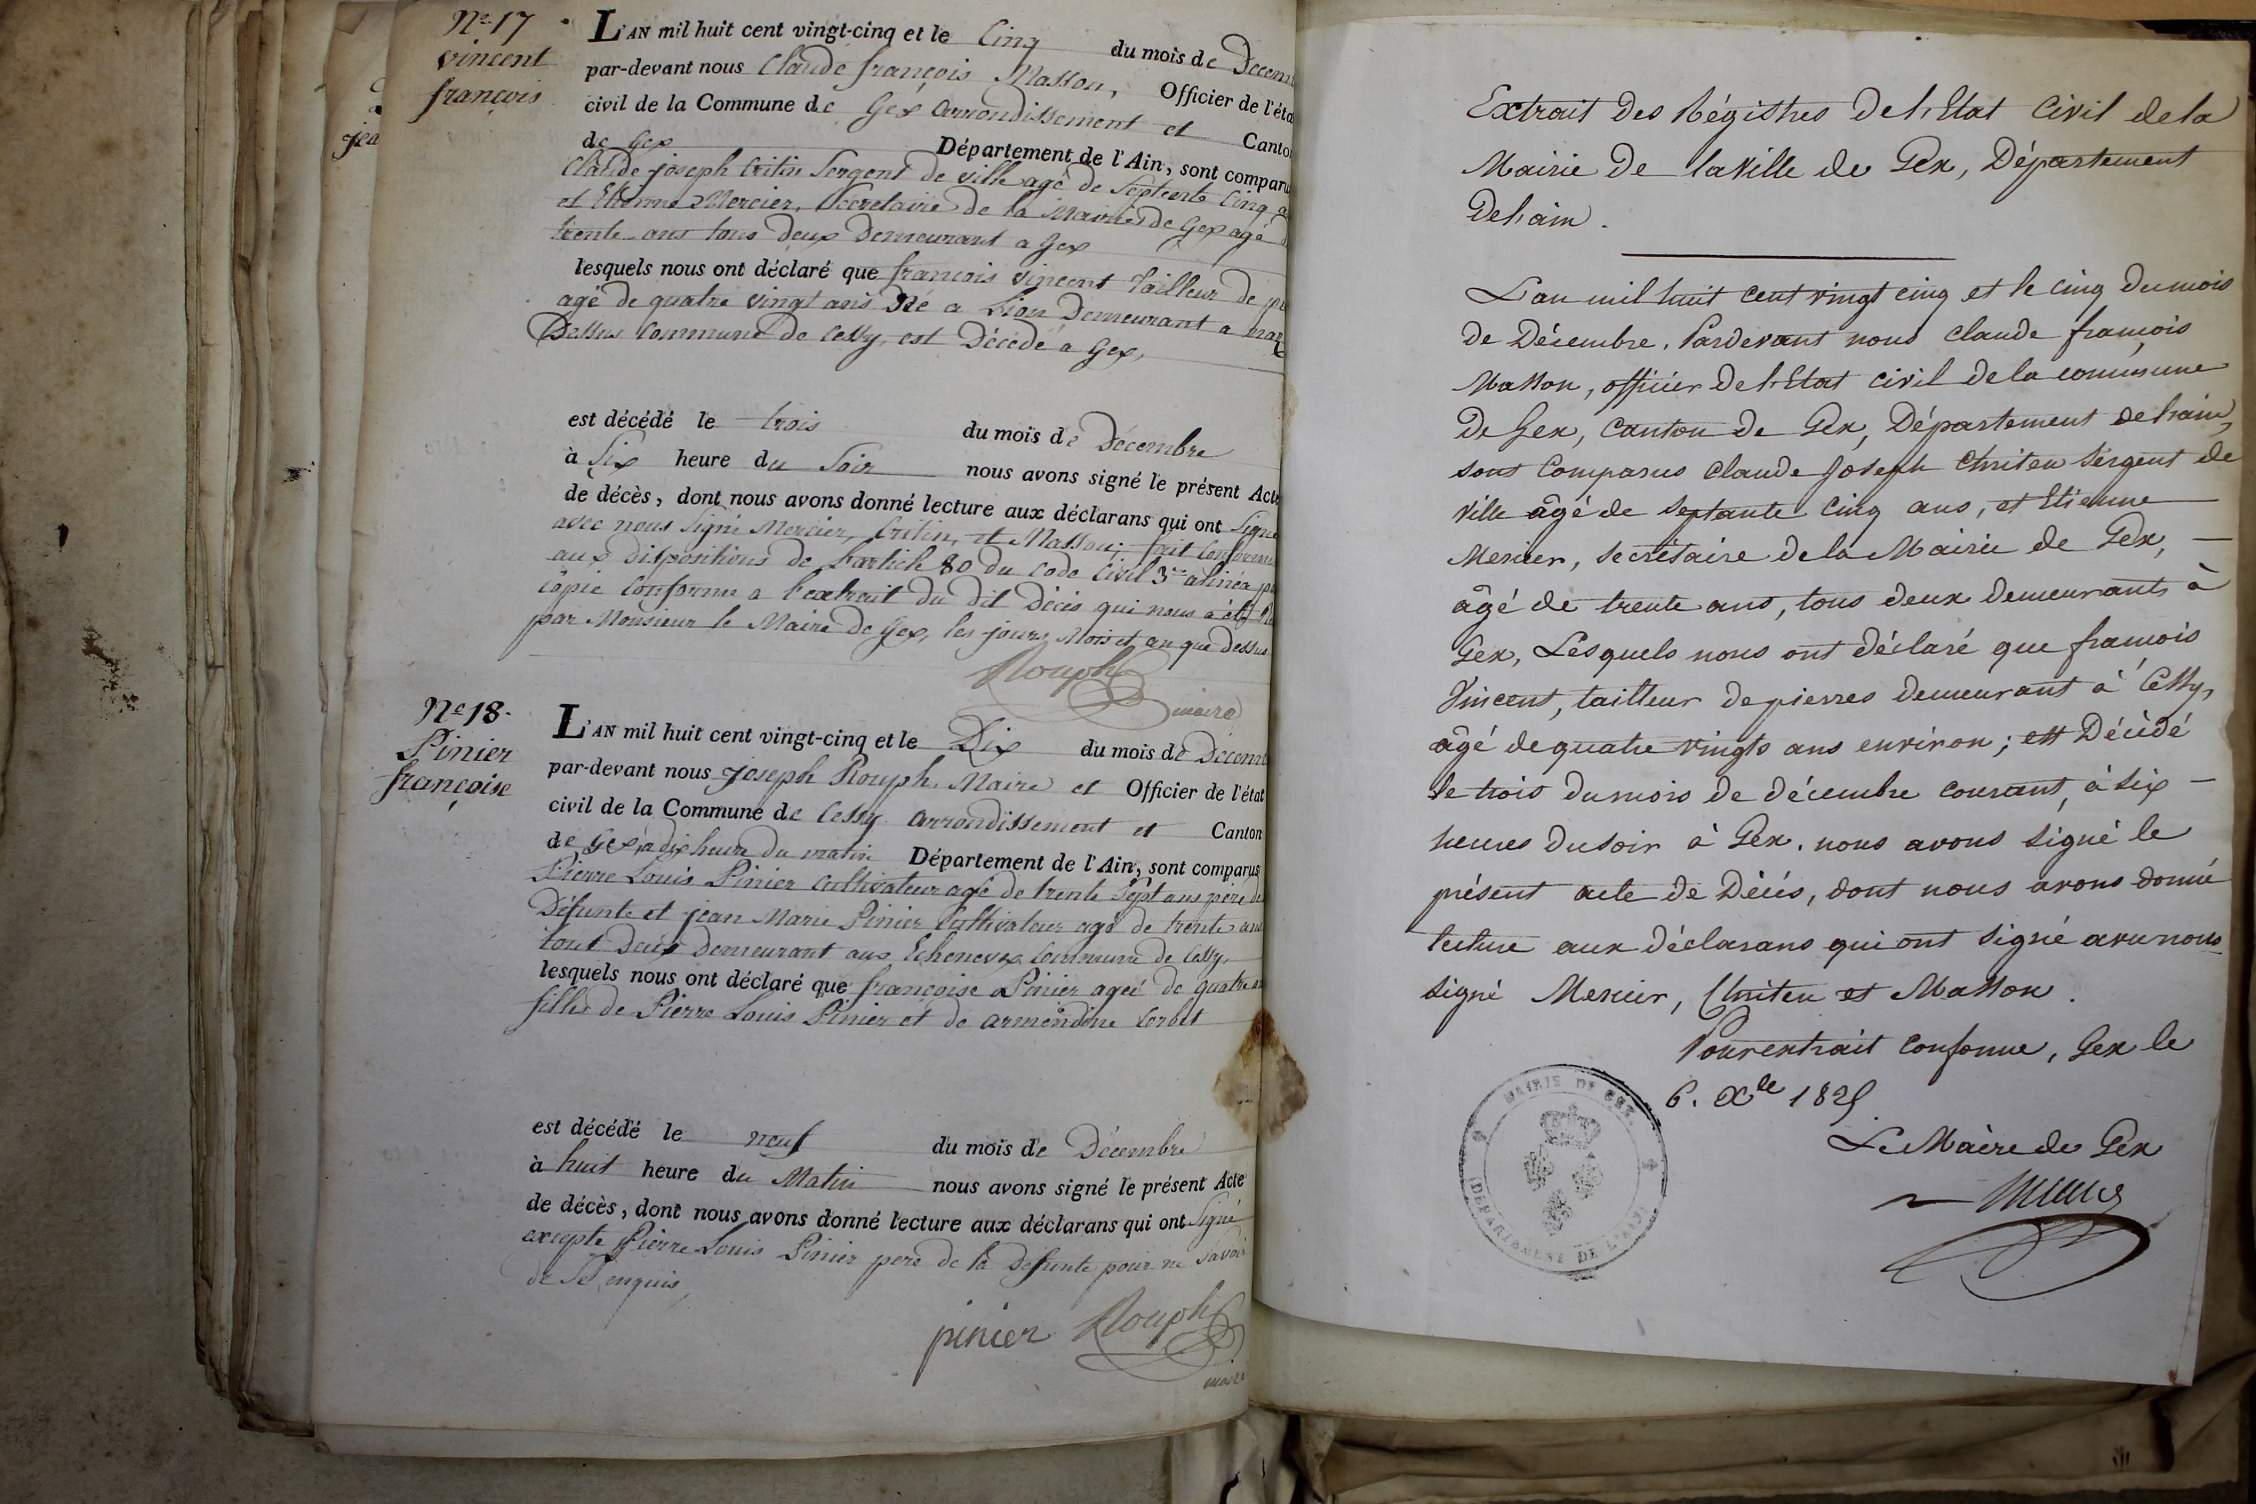 N.º 17
vincent
françois
L'AN mil huit cent vingt-cinq et le Cinq du mois de Decem
par-devant nous Claude françois Masson, Officier de l'éta
civil de la Commune de Gex arrondissement et Canto
de Gex Département de l'Ain, sont comparu
Claude joseph Critin Sergent de ville agé de Septente Cinq a
et Etienne Mercier, Secretaire de la Mairie de Gex agé d
trente ans tous deux Demeurant a Gex
lesquels nous ont déclaré que françois vincent Tailleur de pi
agé de quatre vingt ans Né a Lion Demeurant a
Dessus Commune de Cessy, est Décédé a Gex,
est décédé le trois du mois de Décembre
à Six heure du Soir nous avons signé le présent Acte
de décès, dont nous avons donné lecture aux déclarans qui ont Signé
avec nous Signé Mercier, Critin, et Masson; fait Conforme
aux dispositions de l'article 80 du Code Civil 3me alinéa
Copie Conforme a l'extrait du dit Décès qui nous a été
par Monsieur le Maire de Gex, les jours, Mois et an que dessus
Rouph
maire
N.º 18.
Pinier
françoise
L'AN mil huit cent vingt-cinq et le Dix du mois de Decem
par-devant nous Joseph Rouph, Maire et Officier de l'état
civil de la Commune de Cessy arrondissement et Canton
de Gex, a dix heure du matin Département de l'Ain, sont comparus
Pierre Louis Pinier Cultivateur agé de trente Sept ans pere de
Défunte et jean Marie Pinier Cultivateur agé de trente ans
tout Deux Demeurant aux Echenevex Commune de Cessy,
lesquels nous ont déclaré que françoise Pinier ageé de quatre
fille de Pierre Louis Pinier et de armendine
est décédé le neuf du mois de Décembre
à huit heure du Matin nous avons signé le présent Acte
de décès, dont nous avons donné lecture aux déclarans qui ont Signé
excepte Pierre Louis Pinier pere de la Defunte pour ne Savoir
de Ce enquis,
pinier Rouph
maire
Extrait Des Régistres De l'Etat Civil de la
Mairie De la Ville de Gex, Département
De l'ain.
L'an mil huit cent vingt cinq et le cinq du mois
de Décembre. Pardevant nous Claude françois
Masson, officier De l'Etat civil de la commune
De Gex, Canton de Gex, Département de l'ain,
sont Comparus Claude Joseph Chriten Sergent de
ville âgé de septante cinq ans, et Etienne
Mercier, secrétaire de la Mairie de Gex,
âgé de trente ans, tous deux Demeurants à
Gex, Lesquels nous ont déclaré que françois
Vincent, tailleur de pierres demeurant à Cessy,
âgé de quatre vingts ans environ; est Décédé
le trois du mois de décembre courant, à six
heures du soir à Gex. nous avons signé le
présent acte de Décès, dont nous avons donné
lecture aux déclarans qui ont signé avec nous
signé Mercier, Chriten et Masson.
Pour extrait conforme, Gex le
6. Xbre 1825
Le Maire de Gex
MAIRIE DE GEX.
(DÉPARTEMENT DE L'AIN)